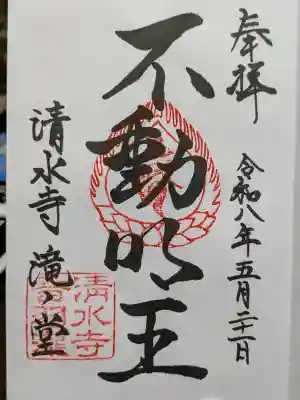 奉拝
令和八年五月二十一日
不動明王
清水寺 滝ノ堂
清水寺